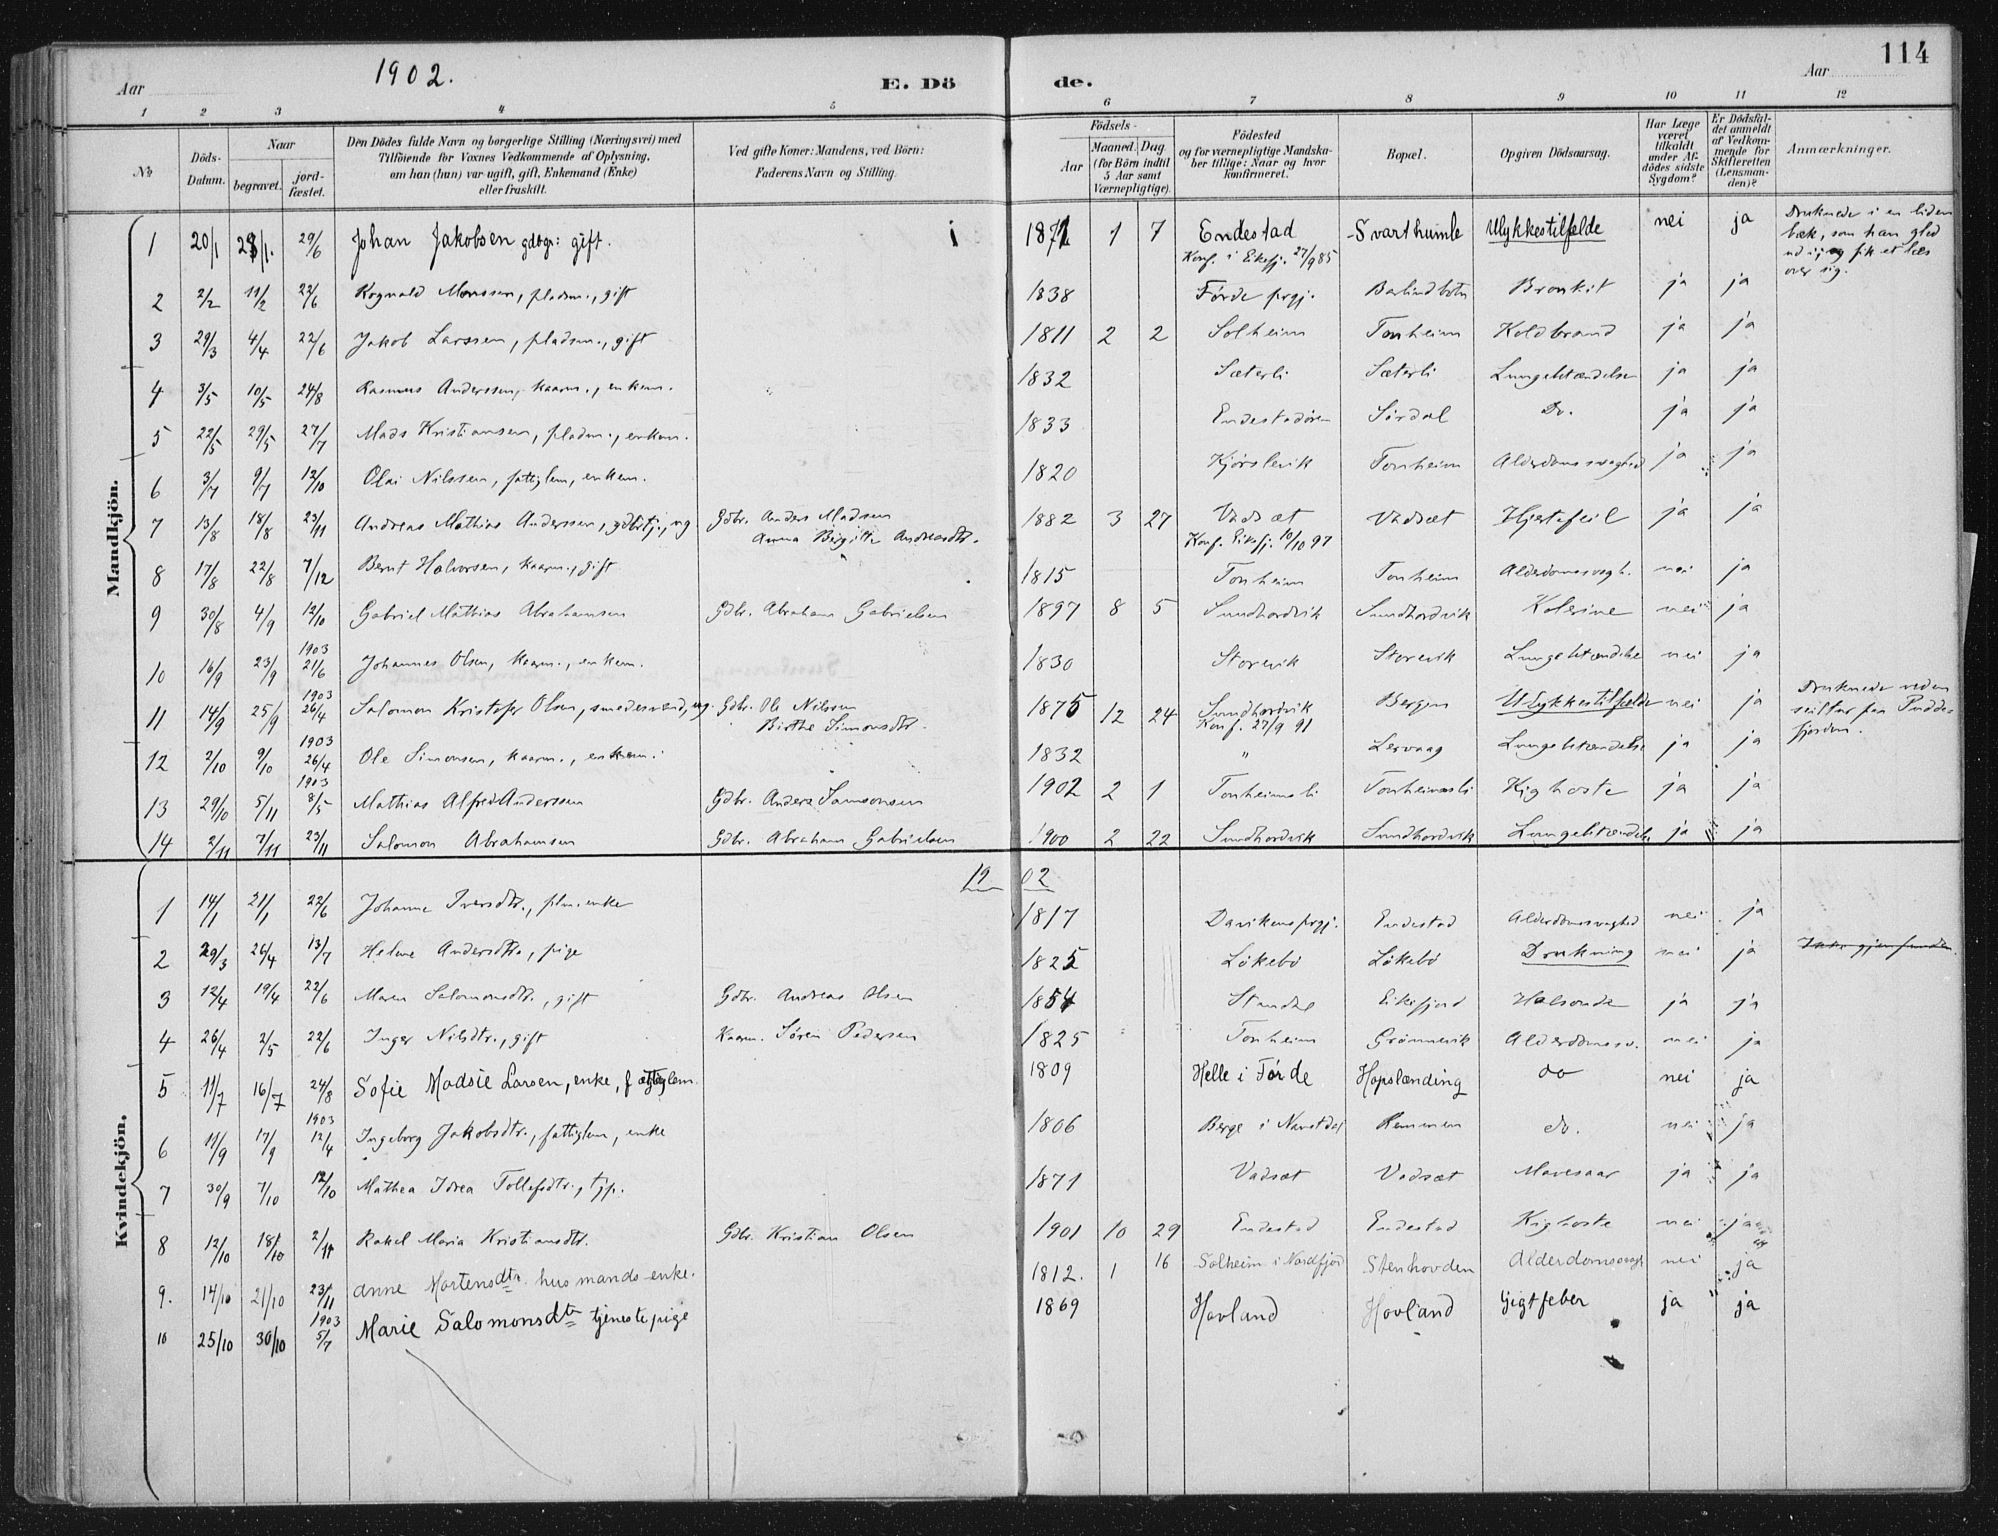 114
Aar 1902. E. Dö de. Aar
1 2 3 4 5 6 7 8 9 10 11 12
No
Döds-Datum.
Naar
begravet.
jord-fæstet.
Den Dödes fulde Navn og borgerlige Stilling (Næringsvei) med
Tilföiende for Voxnes Vedkommende af Oplysning,
om han (hun) var ugift, gift, Enkemand (Enke)
eller fraskilt.
Ved gifte Koner: Mandens, ved Börn:
Faderens Navn og Stilling.
Födsels-
Aar
Maaned. Dag
(for Börn indtil
5 Aar samt
Værnepligtige).
Födested
og for værnepligtige Mandska-
ber tillige: Naar og hvor
konfirmeret.
Bopæl.
Opgiven Dödsaarsag.
Har Læge
været
tilkaldt
under Af-
dödes sidste
Sygdom?
Er Dödsfal-
det anmeldt
af Vedkom-
mende for
Skifteretten
(Lensman-
den)?
Anmærkninger.
Mandkjön.
1 20/1 28/1. 29/6 Johan Jakobsen gdbgr: gift. 1871 1 7 Endestad Svarthumle Ulykkestilfelde nei ja Druknede i en liden
Konf. i Eikefj. 27/9 85 bæk, som han gled
ud i, og fik et læs
over sig.
2 2/2 11/2 22/6 Rognald Monssen, pladsm., gift 1838 Förde prgj. Barlindbotn Bronkit ja ja
3 29/3 4/4 22/6 Jakob Larssen, pladsm., gift 1811 2 2 Solheim Tonheim Koldbrand ja ja
4 3/5 10/5 24/8 Rasmus Anderssen, kaarm., enkem. 1832 Sæterli Sæterli Lungebetændelse ja ja
5 22/5 29/5 27/7 Mads Kristiansen, pladsm., enkem. 1833 Endestadören Sördal Do. ja ja
6 3/7 9/7 12/10 Olai Nilssen, fattiglem, enkem. 1820 Kjörslevik Tonheim Alderdomssvaghed ja ja
7 13/8 18/8 23/11 Andreas Mathias Anderssen, gdbrtj., ug Gdbr. Anders Madsen 1882 3 27 Vadsæt Vadsæt Hjertefeil ja ja
Anna Birgitte Andreasdtr. Konf. Eikefj. 10/10 97
8 17/8 22/8 7/12 Bernt Halvorsen, kaarm., gift 1815 Tonheim Tonheim Alderdomssvagh. nei ja
9 30/8 4/9 12/10 Gabriel Mathias Abrahamsen Gdbr. Abraham Gabrielsen 1897 8 5 Sundhordvik Sundhordvik Kolerine nei ja
10 16/9 23/9 1903 21/6 Johannes Olsen, kaarm., enkem. 1830 Storevik Storevik Lungebetændelse nei ja
11 14/9 25/9 1903 26/4 Salomon Kristofer Olsen, smedesvend, ug. Gdbr. Ole Nilssen 1875 12 24 Sundhordvik Bergen Ulykkestilfælde nei ja Druknede ved en
Birthe Simonsdtr. Konf. 27/9 91 seiltur paa Pudde-
fjorden.
12 2/10 9/10 1903 26/4 Ole Simonsen, kaarm., enkem. 1832 " Lervaag Lungebetændelse ja ja
13 29/10 5/11 1903 8/5 Mathias Alfred Anderssen Gdbr. Anders Samsonsen 1902 2 1 Tonheimsli Tonheimsli Kighoste ja ja
14 2/11 7/11 23/11 Salomon Abrahamsen Gdbr. Abraham Gabrielsen 1900 2 22 Sundhordvik Sundhordvik Lungebetændelse ja ja
1902
Kvindekjön.
1 14/1 21/1 22/6 Johanne Iversdtr., plm. enke 1817 Davikens prgj. Endestad Alderdomssvaghed nei ja
2 29/3 26/4 13/7 Helene Andersdtr., pige 1825 Lökebö Lökebö Drukning nei ja Ikke gjenfunden.
3 12/4 19/4 22/6 Maren Salomonsdtr., gift Gdbr. Andreas Olsen 1854 Standal Eikefjord Halsonde ja ja
4 26/4 2/5 22/6 Inger Nilsdtr., gift Kaarm. Sören Pedersen 1825 Tonheim Grönnevik Alderdomssv. nei ja
5 11/7 16/7 24/8 Sofie Madsie Larsen, enke, fattiglem. 1809 Helle i Förde Hopslænding do nei ja
6 11/9 17/9 1903 12/4 Ingeborg Jakobsdtr., fattiglem, enke 1806 Berge i Naustdal Remmen do. nei ja
7 30/9 7/10 12/10 Mathea Idrea Tollefsdtr., tjp. 1871 Vadsæt Vadsæt Mavesaar ja ja
8 12/10 18/10 2/11 Rakel Maria Kristiansdtr. Gdbr. Kristian Olsen 1901 10 29 Endestad Endestad Kighoste nei ja
9. 14/10 21/10 23/11 Anne Mortensdtr husmands enke. 1812. 1 16 Solheim i Nordfjord Stenhovden Alderdomssvagh nei ja
10 25/10 30/10 1903 5/7 Marie Salomonsdtr tjenestepige 1869 Hovland Hovland Gigtfeber ja ja